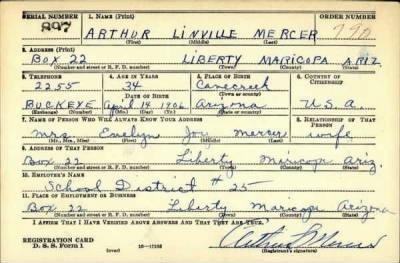 SERIAL NUMBER 1. NAME (Print) ORDER NUMBER
897 ARTHUR LINVILLE MERCER 790
(First) (Middle) (Last)
2. ADDRESS (Print)
BOX 22 LIBERTY MARICOPA ARIZ.
(Number and street or R. F. D. number) (Town) (County) (State)
3. TELEPHONE 4. AGE IN YEARS 5. PLACE OF BIRTH 6. COUNTRY OF CITIZENSHIP
2255 34 Canecreek
DATE OF BIRTH (Town or county)
BUCKEYE April 14 1906 Arizona U.S.A.
(Exchange) (Number) (Mo.) (Day) (Yr.) (State or country)
7. NAME OF PERSON WHO WILL ALWAYS KNOW YOUR ADDRESS 8. RELATIONSHIP OF THAT PERSON
Mrs. Evelyn Joy Mercer wife
(Mr., Mrs., Miss) (First) (Middle) (Last)
9. ADDRESS OF THAT PERSON
Box 22 Liberty Maricopa Ariz.
(Number and street or R. F. D. number) (Town) (County) (State)
10. EMPLOYER'S NAME
School District # 25
11. PLACE OF EMPLOYMENT OR BUSINESS
Box 22 Liberty Maricopa Arizona
(Number and street or R. F. D. number) (Town) (County) (State)
I AFFIRM THAT I HAVE VERIFIED ABOVE ANSWERS AND THAT THEY ARE TRUE.
REGISTRATION CARD
D. S. S. Form 1 (over) 16—17105